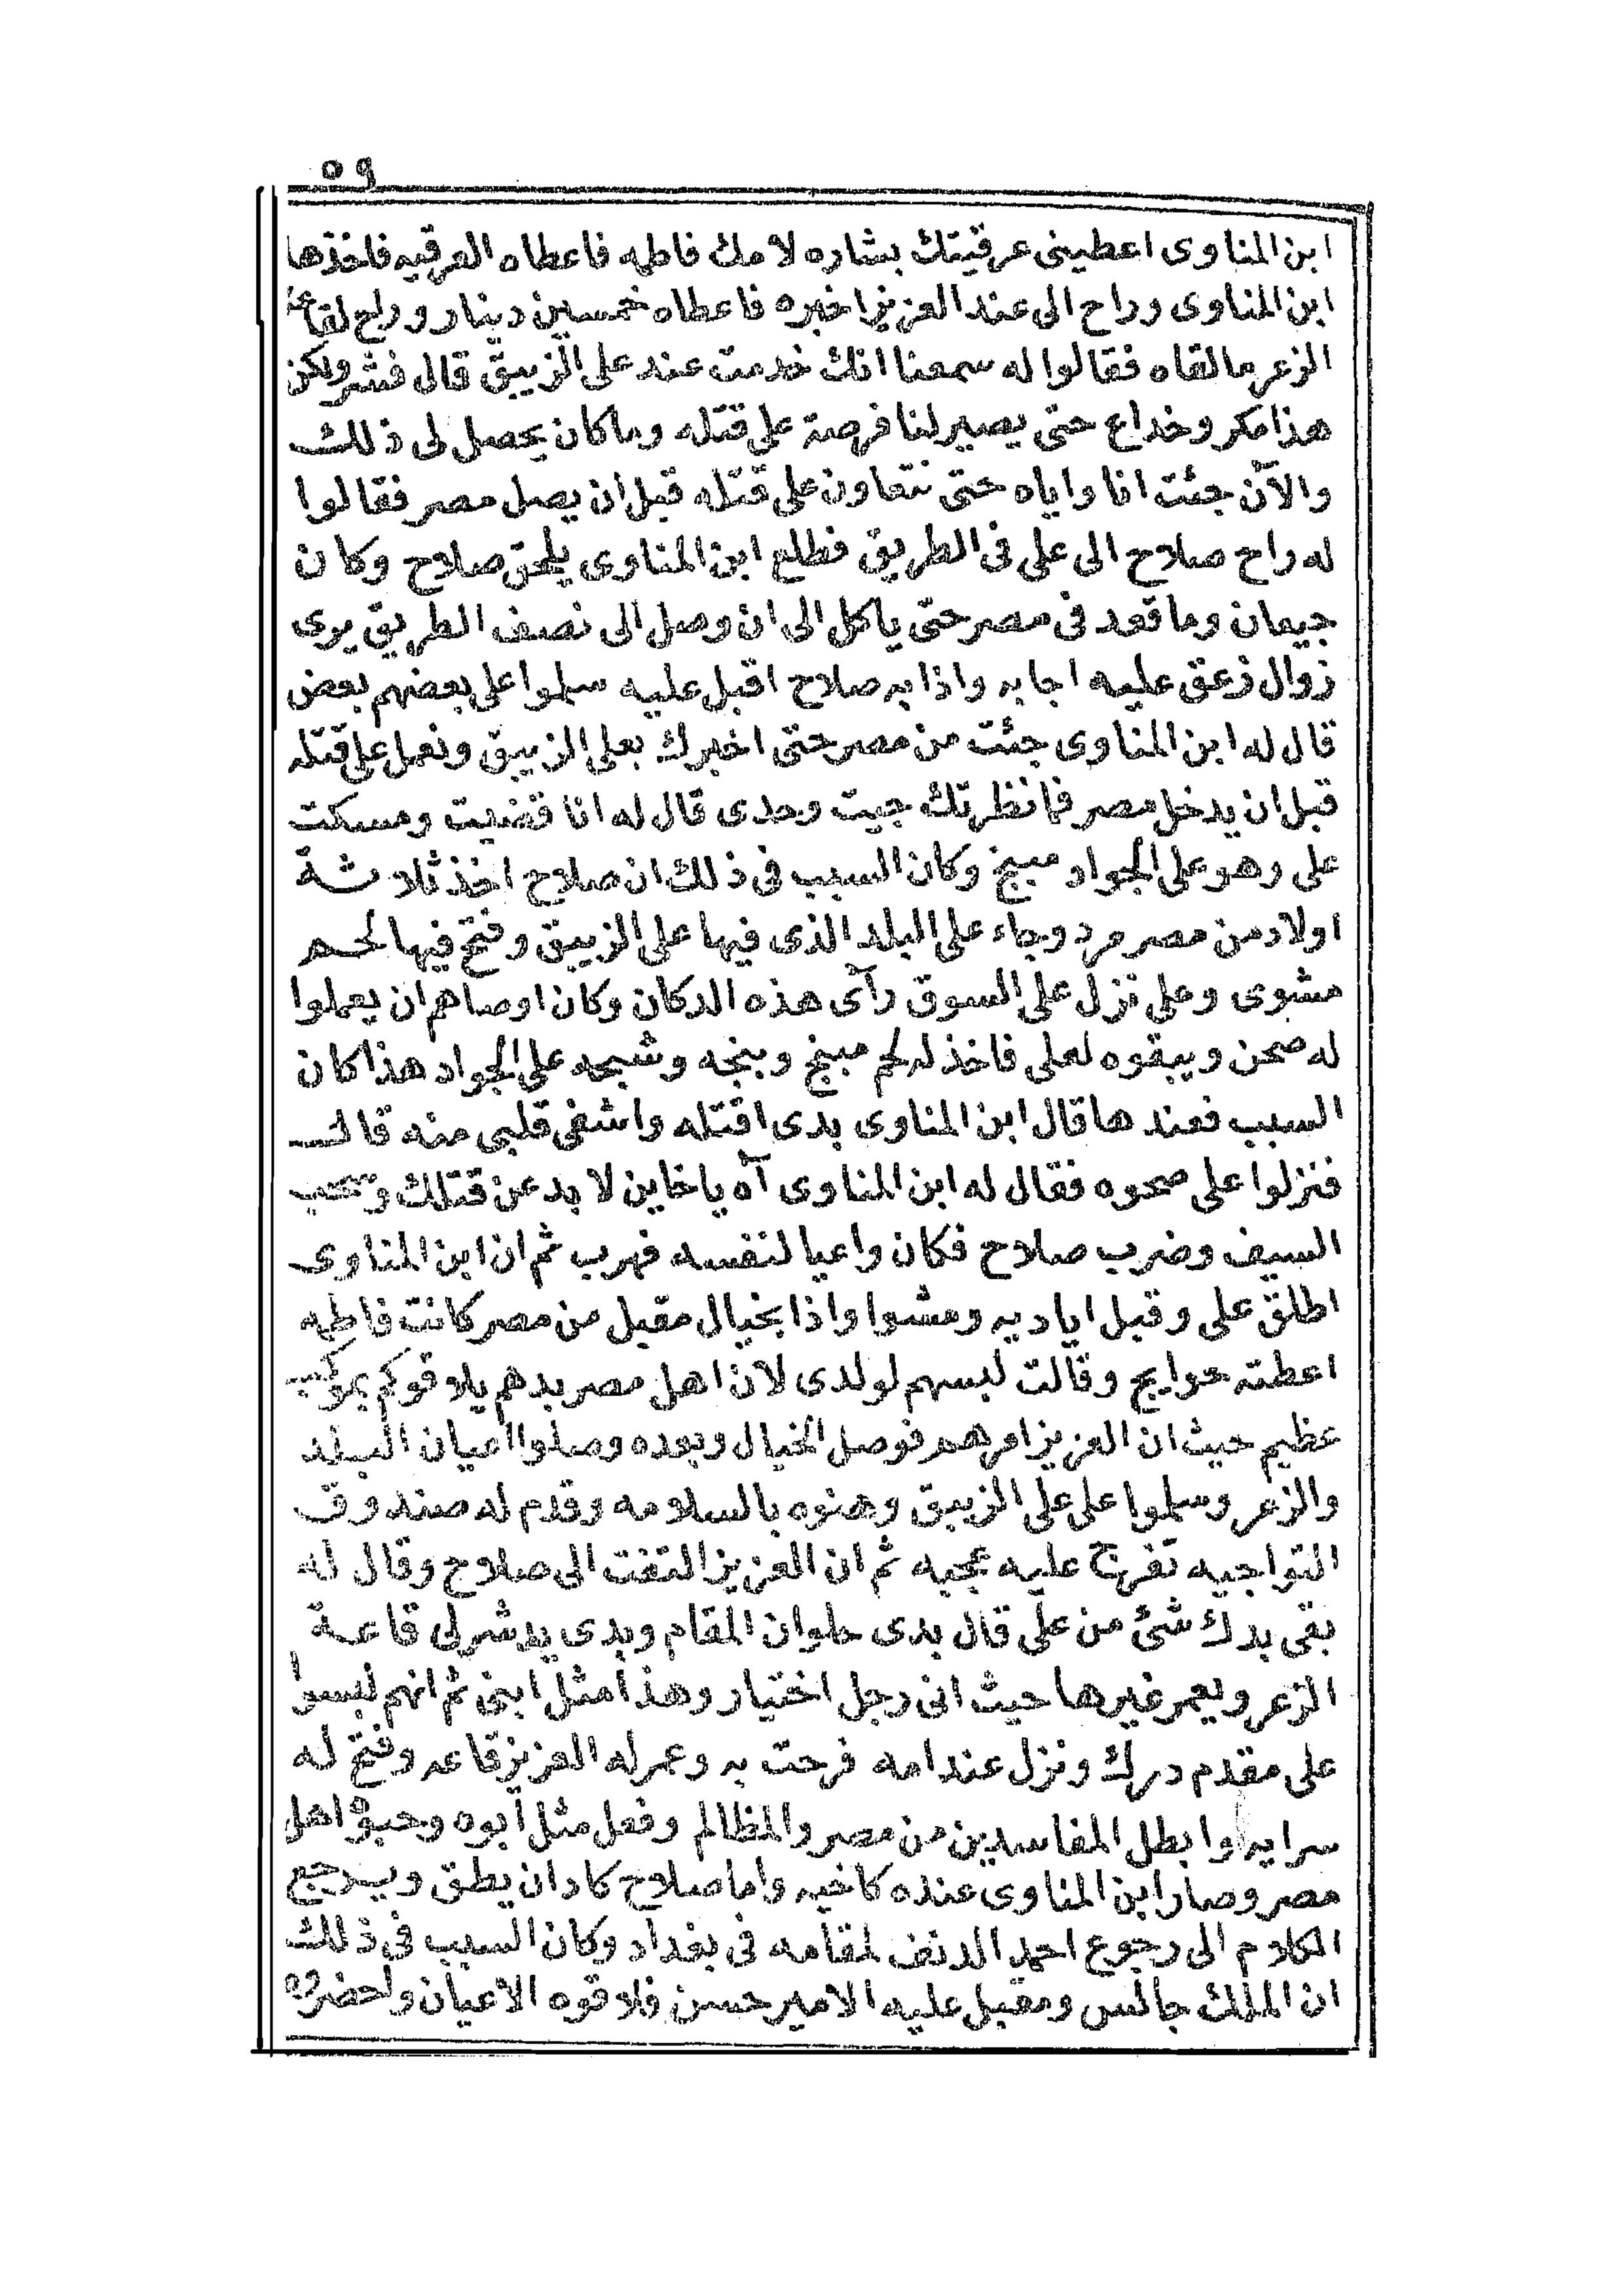 ٥٩
ابن المناوى اعطينى عرقيتك بشاره لامك فاطمه فاعطاه العرقيه فاخذها
ابن المناوى وراح الى عند العزيز اخبره فاعطاه خمسين دينار وراح لقاعة
الزعر مالقاه فقالوا له سمعنا انك خدمت عند على الزيبق قال فشر ولكن
هذا مكر وخداع حتى يصير لنا فرصة على قتله وما كان يحصل لى ذلك
والآن جئت انا واياه حتى نتعاون على قتله قبل ان يصل مصر فقالوا
له راح صلاح الى على فى الطريق فطلع ابن المناوى يلحق صلاح وكان
جيعان وما قعد فى مصر حتى ياكل الى ان وصل الى نصف الطريق يرى
زوال زعق عليه اجابه واذا به صلاح اقبل عليه سلموا على بعضهم بعض
قال له ابن المناوى جئت من مصر حتى اخبرك بعلى الزيبق ونعمل على قتله
قبل ان يدخل مصر فما نظرتك جيت وحدى قال له انا قضيت ومسكت
على وهو على الجواد مبنج وكان السبب فى ذلك ان صلاح اخذ ثلاثة
اولاد من مصر مرد وجاء على البلد الذى فيها على الزيبق وفتح فيها لحم
مشوى وعلى نزل على السوق رآى هذه الدكان وكان اوصاهم ان يعملوا
له صحن ويبقوه لعلى فاخذ له لحم مبنج وبنجه وشبحه على الجواد هذا كان
السبب فعندها قال ابن المناوى بدى اقتله واشفى قلبى منه قال
فنزلوا على صحوه فقال له ابن المناوى آه يا خاين لا بد عن قتلك وسحب
السيف وضرب صلاح فكان واعيا لنفسه فهرب ثم ان ابن المناوى
اطلق على وقبل اياديه ومشوا واذا بخيال مقبل من مصر كانت فاطمه
اعطته حوايج وقالت لبسهم لولدى لان اهل مصر بدهم يلاقوكم بموكب
عظيم حيث ان العزيز امرهم فوصل الخيال وبعده وصلوا اعيان البلد
والزعر وسلموا على على الزيبق وهنوه بالسلامه وقدم له صندوق
التواجيه تفرج عليه عجبه ثم ان العزيز التفت الى صلاح وقال له
بقى بدك شئ من على قال بدى حلوان المقام وبدى يدشر لى قاعة
الزعر ويعمر غيرها حيث انى رجل اختيار وهذا مثل ابنى ثم انهم لبسوا
على مقدم درك ونزل عند امه فرحت به وعمر له العزيز قاعه وفتح له
سرايه وابطل المفاسدين من مصر والمظالم وفعل مثل آبوه وحبوه اهل
مصر وصار ابن المناوى عنده كاخيه واما صلاح كاد ان يطق ويرجع
الكلام الى رجوع احمد الدنف لمقامه فى بغداد وكان السبب فى ذلك
ان الملك جالس ومقبل عليه الامير حسن فلاقوه الاعيان واحضروه